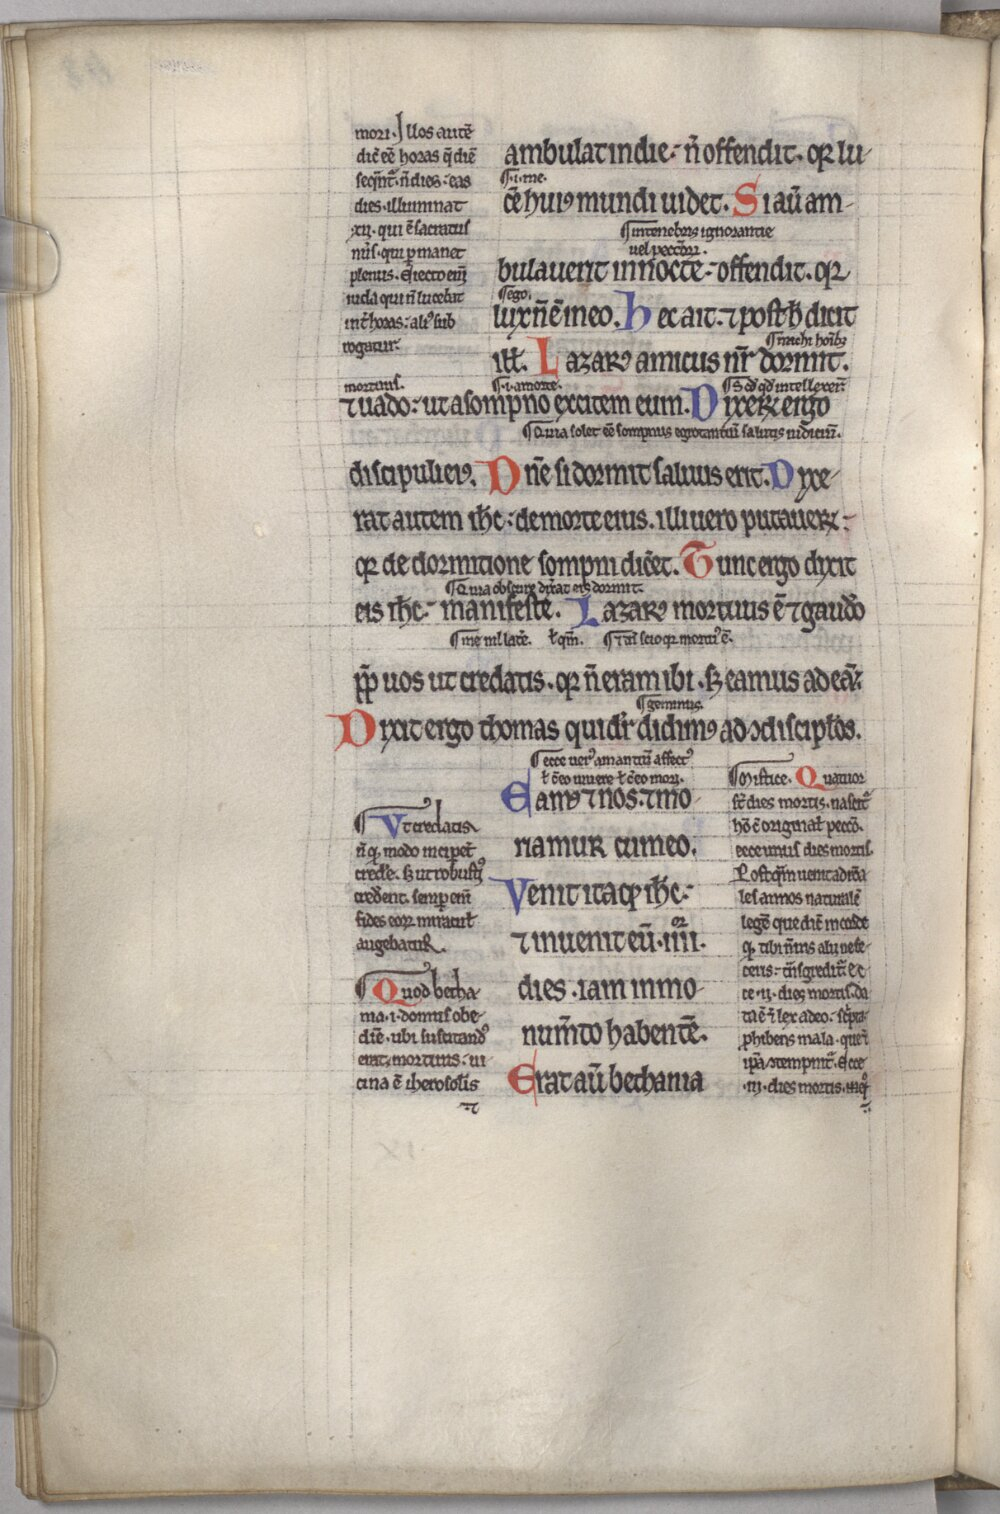 mori. Illos autē
dic̄ eē horas q̄ diē
seqn̄t̄. n̄ dies. eas
dies illuminat
xii. qui ē sacratus
nūs. qui ꝑmanet
plenus. eiecto eni͂
iuda qui n̄ lucebat
int̄ horas. aliꝰ sub
rogatur.
ambulat in die. n̄ offendit. qꝛ lu
¶ .i. me.
cē huiꝰ mundi uidet. Si aū am
¶ in tenebris ignorantie
uel peccōrꝝ.
bulauerit in nocte. offendit. qꝛ
¶ ego.
lux n̄ ē in eo. Hec ait. ⁊ post h̄ dicit
¶ michi hoībꝫ
ill̄. Lazarꝰ amicus nr̄ dormit.
mortuus. ¶ .i. a morte. ¶ Sꝫ qd̄ intellexer̄
⁊ uado. ut a sompno excitem eum. Dixerꝝ ergo
¶ Quia solet eē sompnus egrotantiū salutis iudiciū.
discipuli eiꝰ. Dn̄e si dormit saluus erit. Dixe
rat autem ih̄c. de morte eius. illi uero putauerꝝ
qꝛ de dormitione sompni dic̄et. Tunc ergo dixit
¶ Quia obscure dix̄at eis dormit.
eis ih̄c. manifeste. Lazarꝰ mortuus ē ⁊ gaudeo
¶ me nil latē. ł qm̄. ¶ ⁊ tn̄ scio qꝛ mortuꝰ ē.
ꝓꝑ uos ut credatis. qꝛ n̄ eram ibi. sꝫ eamus ad eū.
¶ geminus.
Dixit ergo thomas qui dr̄ didimꝰ ad ꝯdiscipłos.
¶ ecce uerꝰ amantiū affectꝰ
ł c̄ eo uiuere ł c̄ eo mori.
Eamꝰ ⁊ nos. ⁊ mo
riamur cum eo.
Venit itaqꝫ ih̄c.
⁊ inuenit eū. iiii.
dies. iam in mo
num̄to habentē.
Erat aū bethania
¶ Ut credatis
n̄ qꝫ modo incipet̄
cred̄e. sꝫ ut robustiꝰ
crederent. semꝑ eni͂
fides eoꝝ miracułˢ
augebatur.
¶ Quod betha
nia .i. domus obe
diē. ubi suscitandꝰ
erat mortuus. ui
cina ē iherosolis
¶ Mistice. Quatuor
st̄ dies mortis. nascit̄
hō c̄ originał pecc̄o.
ecce unus dies mortis.
Postqm̄ uenit ad d͂na
les annos naturalē
legē que dic̄ in corde
qꝫ tibi n̄ uis alii ne fe
ceris. t̄nsgredit̄ ec
ce .ii. dies mortis. da
ta ē ⁊ lex a deo. sc̄pta
ꝓhibens mala. que ⁊
ip̄a ꝯtempnit̄. Ecce
.iii. dies mortis.